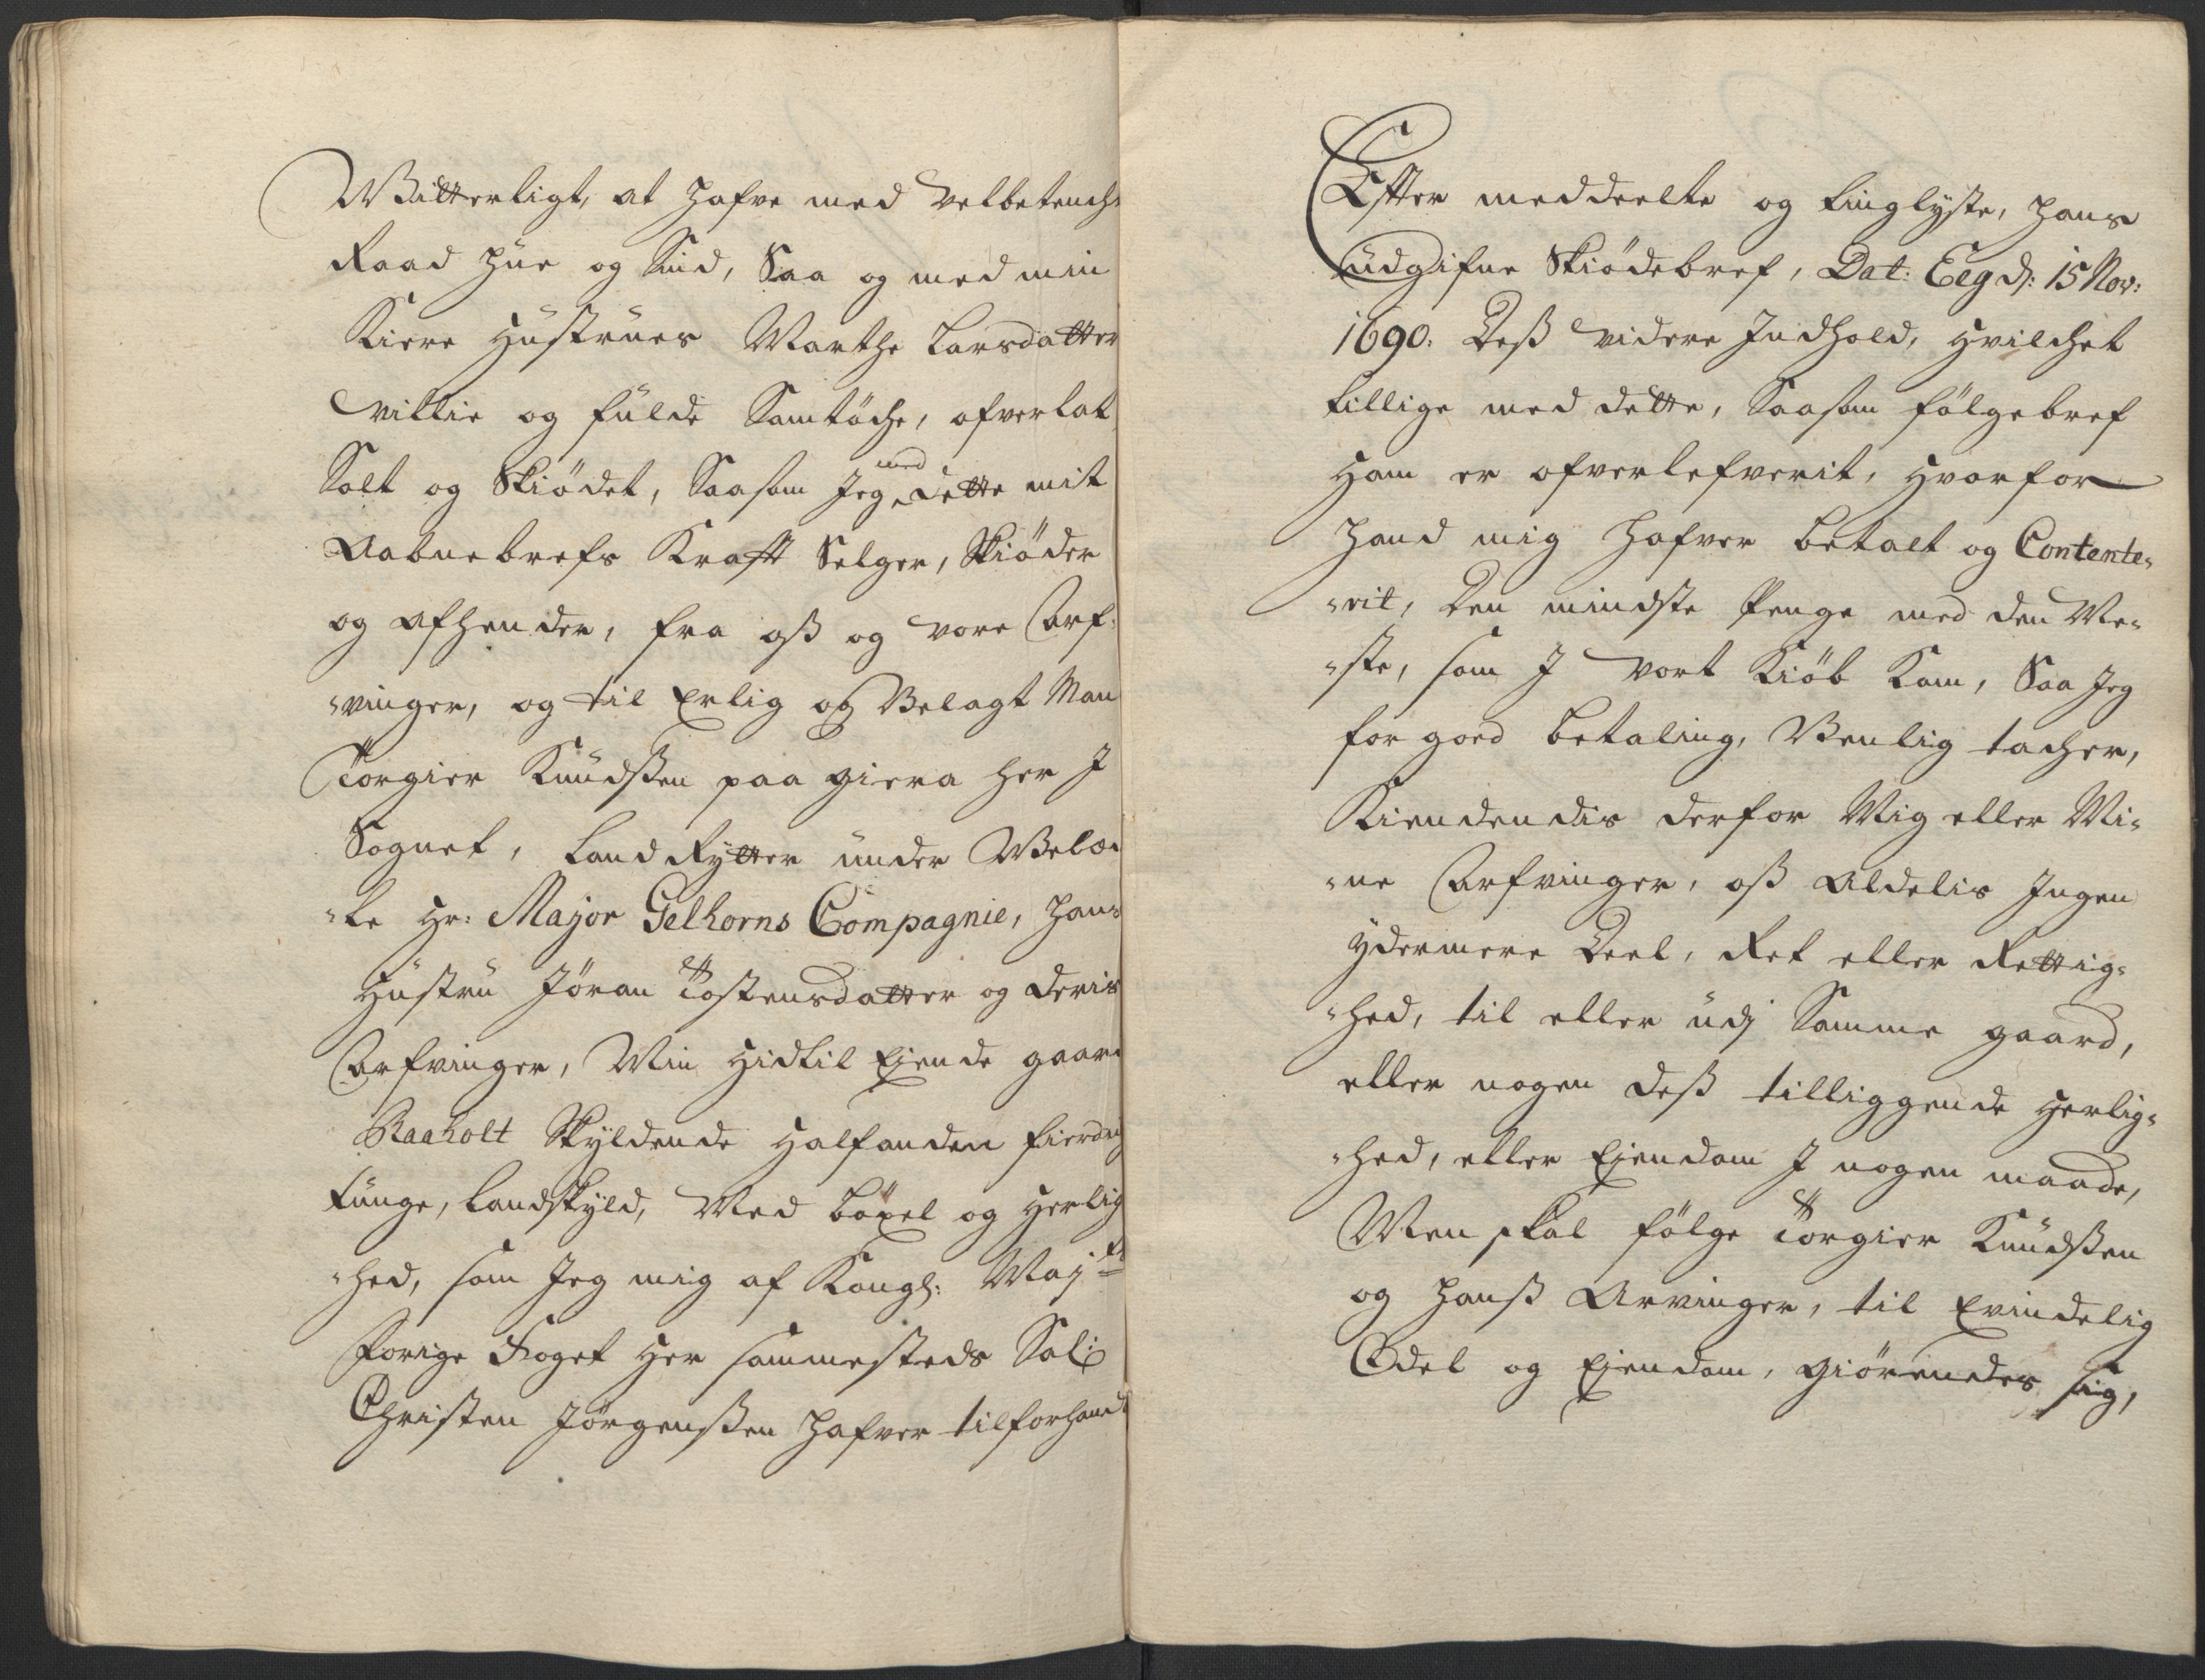 Witterligt, at hafve med Velbetench
Raad hŭe og Sind, Saa og med min
Kiere Hŭstrŭes Marthe Larsdatter
Villie og fŭlde Samtöche, ofverlat
Solt og Skiödet, Saasom Jeg med dette mit
Aabnebrefs Krafft Selger, Skiöder
og afhender, fra oß og vore Arf-
vinger, og til Erlig og Velagt Man
Torgier Knŭdßen paa Giera her I
Sognet, Land Rytter ŭnder Velœd
le Hr: Major Gelhorns Compagnie, hans
Hŭstrŭ Jöran Tostensdatter og deris
Arfvinger, Min Hidtil Ejende gaard
Raaholt Skyldende Halfanden fierding
tŭnge, Landskyld, Med böxel og Herlig
hed, som Jeg mig af Kongl: Maj.ts
forige Foget Her sammesteds Sal:
Christen Jörgenßen hafver tilforhand
Effter meddeelte og tinglyste, hans
ŭdgifne Skiödebref, Dat: Eeg d: 15 Nov:
1690. Deß videre Indhold, Hvilchet
tillige med dette, Saasom fölgebref
Ham er ofverlefverit, Hvorfor
hand mig hafver betalt og Contente-
rit, Den mindste Penge med den Me-
ste, som I vort Kiöb Kom, Saa Jeg
for goed betaling, Venlig tacher,
Kiendendis derfor Mig eller Mi-
ne Arfvinger, oß Aldelis Ingen
ydermere Deel, Ret eller Rettig-
hed, til eller ŭdj Samme gaard,
eller nogen deß tilliggende Herlig-
hed, eller Ejendom I nogen maade,
Men skal fölge Torgier Knŭdßen
og hanß Arvinger, til Evindelig
Odel og Ejendom, giörendes sig,